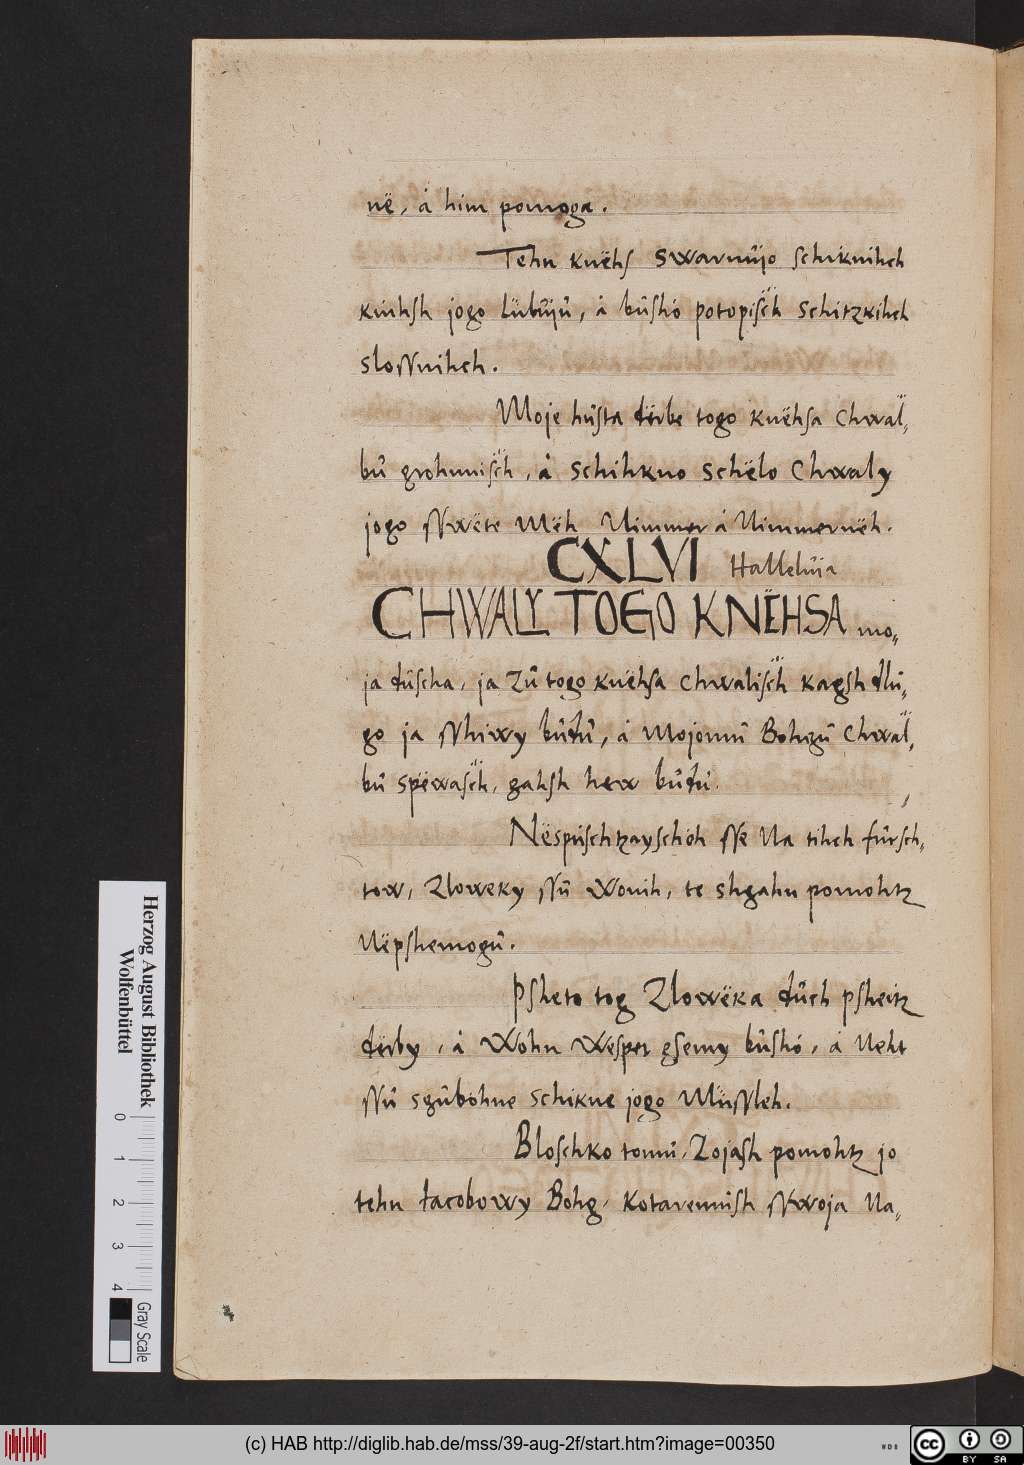 në, å him pomoga.
Tehn knëhs swarnüjo schiknihch
kinhsh jogo lübüjů, å bůshó potopisch schitzkihch
slossnihch.
Moje hůsta dërbe togo knëhsa chwal,
bů grohnnisch, å schihkno schëlo Chwaly
jogo sswëte Mëh Nimmer å Nimmernëh.
CXLVI Halleluia
CHWALY TOGO KNËHSA mo,
ja düscha, ja zů togo knëhsa chwalisch kagsh dlů,
go ja sshiwy bůdů, å Mojomů Bohgů chwal,
bů spëwasch, gahsh hew bůdů.
Nëspüschtzayschöh sse Na tihch fůrsch,
tow, Zloweky ssů wonih, te shgahn pomohtz
Nëpshemogů.
Psheto tog Zlowëka důch psheitz
dërby, å Wohn Wesper gsemy bůshó, å Neht
ssů sgůbohne schikne jogo Müssleh.
Bloschko tomů, Zojash pomohtz jo
tehn Jacobowy Bohg, Kotaremůsh sswoja Na,
Herzog August Bibliothek
Wolfenbüttel
0 1 2 3 4
Gray Scale
(c) HAB http://diglib.hab.de/mss/39-aug-2f/start.htm?image=00350
WDB
cc BY SA